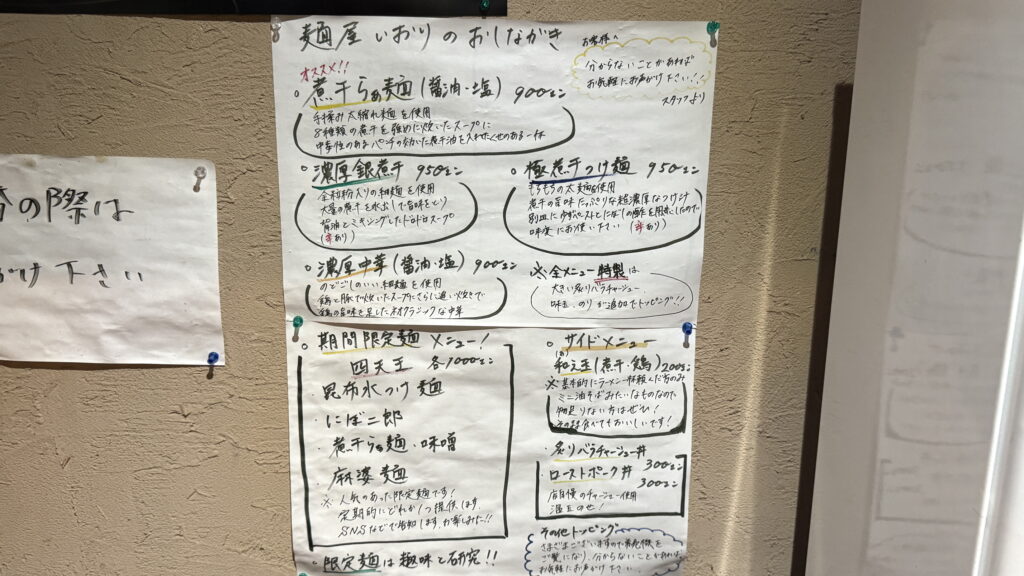 麺屋 いおりのおしながき
お客様へ
分からないことがあれば
お気軽にお声がけ下さい!!
スタッフより
オススメ!!
煮干らぁ麺(醤油・塩) 900エン
手揉み太縮れ麺を使用
8種類の煮干を強めに炊いたスープに
中毒性のあるパンチの効いた煮干油を入れたくせのある一杯
濃厚銀煮干 950エン
全粒粉入りの細麺を使用
大量の煮干を水出しで旨味をとり
背油とミキシングしたドロドロスープ
(辛あり)
極煮干つけ麺 950エン
もちもちの太麺を使用
煮干の旨味たっぷりな超濃厚なつけ汁
味変にお使い下さい (辛あり)
濃厚中華(醤油・塩) 900エン
のどごしのいい細麺を使用
鶏と豚で炊いたスープにさらに追い炊きで
鶏の旨味を足したネオクラシックな中華
※全メニュー特製は
大きい炙りバラチャーシュー
味玉、のりが追加でトッピング!!
期間限定麺メニュー!
四天王 各1000エン
昆布水つけ麺
・にぼ二郎
・煮干らぁ麺・味噌
・麻婆麺
※人気のあった限定麺です!
定期的にどれか1つ提供します。
SNSなどで告知します お楽しみに!!
・限定麺は趣味と研究!!
サイドメニュー
和え玉(煮干・鶏) 200エン
※基本的にラーメン一杯頼んだ方のみ
ミニ油そばみたいなものなので
物足りない方はぜひ!
そのまま食べてもおいしいです!
・炙りバラチャーシュー丼 300エン
・ローストポーク丼 300エン
当店自慢のチャーシュー使用
その他トッピング
さまざまございますので券売機を
ご覧になり、分からないことがあれば、
お気軽にお声がけ下さい。
の際は
がけ下さい